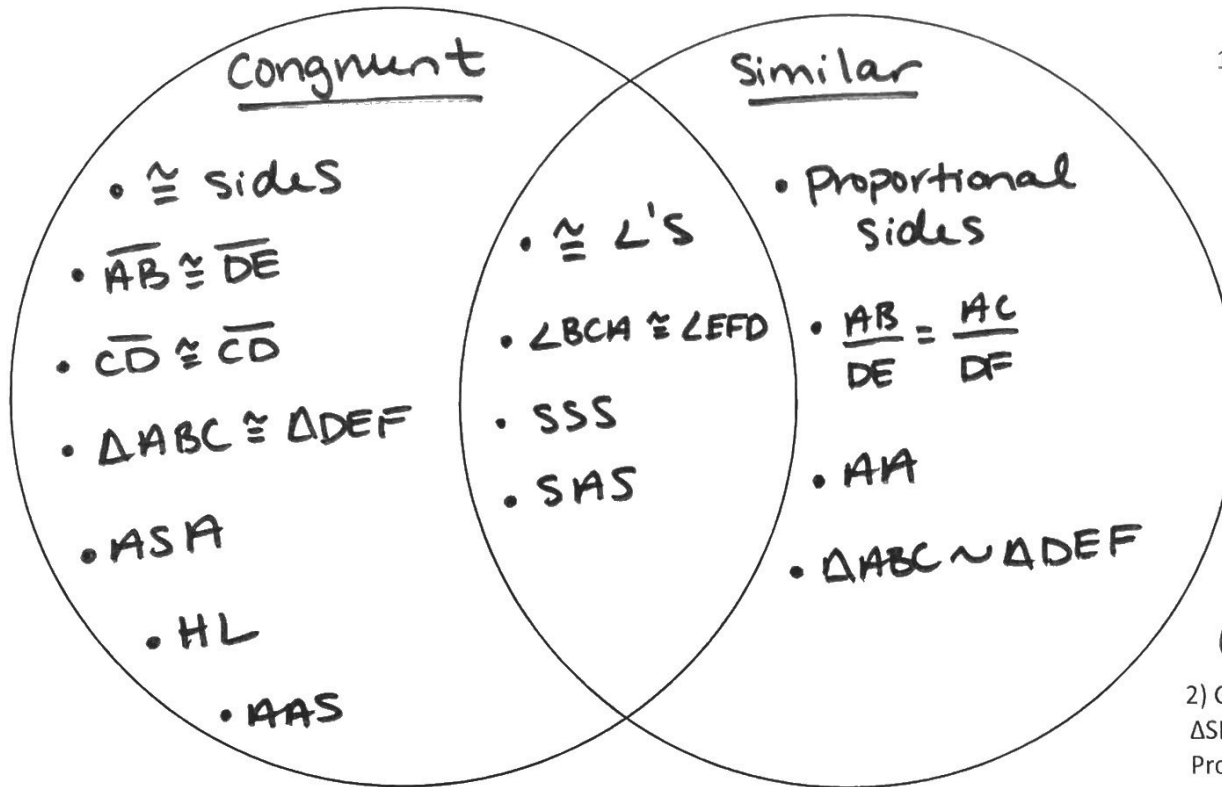 Congruent
• ≅ sides
• A̅B̅ ≅ D̅E̅
• C̅D̅ ≅ C̅D̅
• ΔABC ≅ ΔDEF
• ASA
• HL
• AAS
• ≅ ∠'s
• ∠BCA ≅ ∠EFD
• SSS
• SAS
Similar
• Proportional
sides
• AB/DE = AC/DF
• AA
• ΔABC ~ ΔDEF
2)